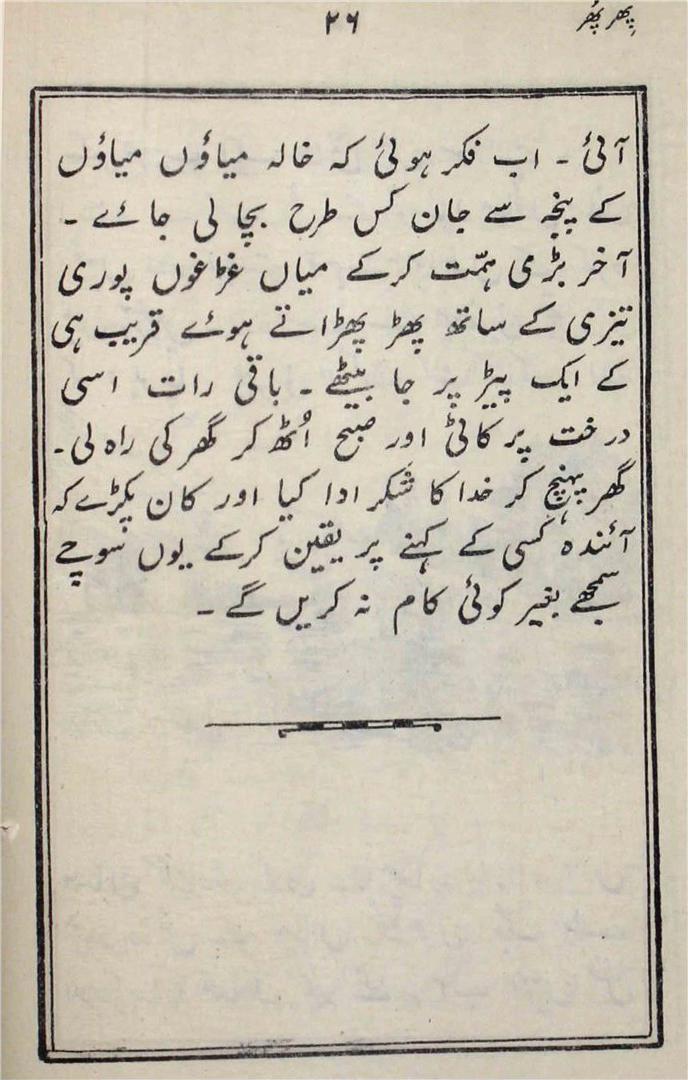 پھر پھُر
۲۶
آئی ۔ اب فکر ہوئی کہ خالہ میاؤں میاؤں
کے پنجہ سے جان کس طرح بچا لی جائے ۔
آخر بڑی ہمّت کرکے میاں غڑغوں پوری
تیزی کے ساتھ پھڑ پھڑاتے ہوئے قریب ہی
کے ایک پیڑ پر جا بیٹھے ۔ باقی رات اسی
درخت پر کاٹی اور صبح اُٹھ کر گھر کی راہ لی۔
گھر پہنچ کر خدا کا شکر ادا کیا اور کان پکڑے کہ
آئندہ کسی کے کہنے پر یقین کرکے یوں سوچے
سمجھے بغیر کوئی کام نہ کریں گے ۔